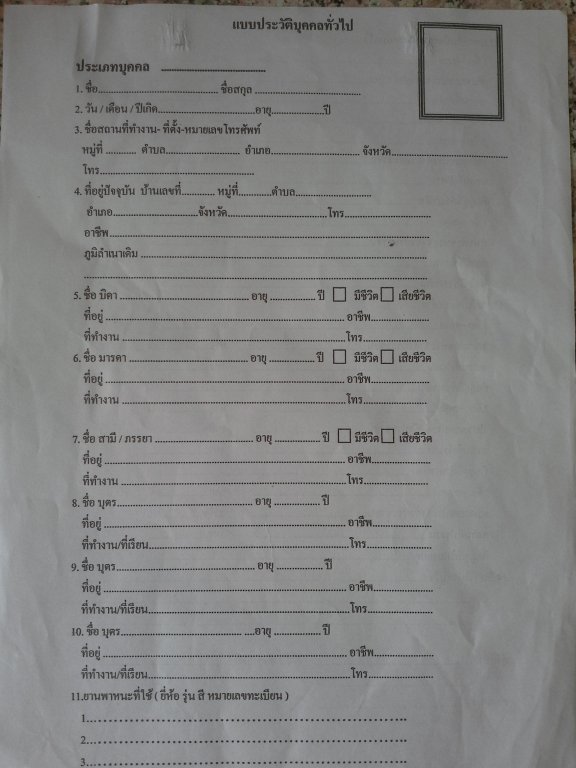 แบบประวัติบุคคลทั่วไป
ประเภทบุคคล ..............................
1. ชื่อ........................................ ชื่อสกุล ....................................
2. วัน / เดือน / ปีเกิด................................อายุ..................ปี
3. ชื่อสถานที่ทำงาน- ที่ตั้ง-หมายเลขโทรศัพท์
หมู่ที่ ........... ตำบล......................... อำเภอ.............................. จังหวัด........................................
โทร....................................................
4. ที่อยู่ปัจจุบัน บ้านเลขที่........... หมู่ที่...........ตำบล..........................
อำเภอ............................จังหวัด..................................โทร.............................
อาชีพ...........................................................................................................
ภูมิลำเนาเดิม ................................................................................................
....................................................................................................................
5. ชื่อ บิดา ............................................ อายุ ................ ปี □ มีชีวิต □ เสียชีวิต
ที่อยู่ ................................................................................ อาชีพ....................
ที่ทำงาน ...........................................................................โทร......................
6. ชื่อ มารดา ........................................ อายุ ................ ปี □ มีชีวิต □ เสียชีวิต
ที่อยู่ ................................................................................ อาชีพ....................
ที่ทำงาน ...........................................................................โทร......................
7. ชื่อ สามี / ภรรยา ................................. อายุ ................ ปี □ มีชีวิต □ เสียชีวิต
ที่อยู่ ................................................................................ อาชีพ....................
ที่ทำงาน ...........................................................................โทร......................
8. ชื่อ บุตร.............................................. อายุ ................ ปี
ที่อยู่ ................................................................................ อาชีพ....................
ที่ทำงาน/ที่เรียน...................................................................โทร......................
9. ชื่อ บุตร.............................................. อายุ ................ ปี
ที่อยู่ ................................................................................ อาชีพ....................
ที่ทำงาน/ที่เรียน................................................................... โทร......................
10. ชื่อ บุตร......................................... ....อายุ ................ ปี
ที่อยู่ ................................................................................ อาชีพ....................
ที่ทำงาน/ที่เรียน................................................................... โทร......................
11.ยานพาหนะที่ใช้ ( ยี่ห้อ รุ่น สี หมายเลขทะเบียน )
1...............................................................
2...............................................................
3...............................................................